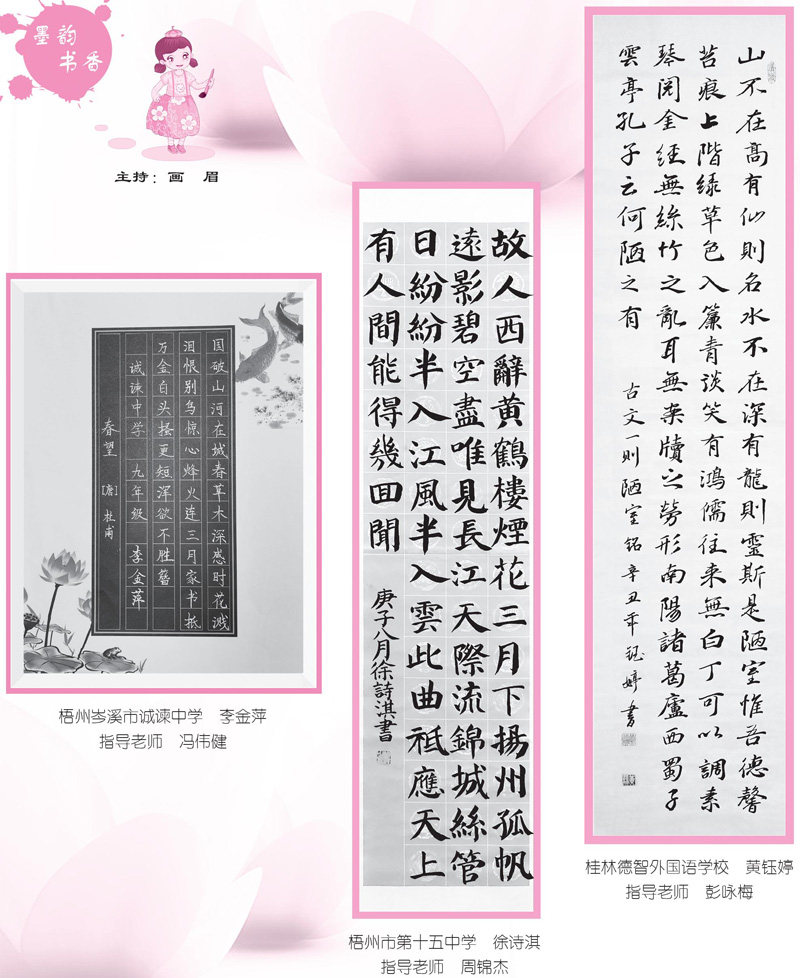 墨韵
书香
主持：画 眉
国破山河在城春草木深感时花溅
泪恨别鸟惊心烽火连三月家书抵
万金白头搔更短浑欲不胜簪
诚谏中学 九年级 李金萍
春望 [唐] 杜甫
梧州岑溪市诚谏中学 李金萍
指导老师 冯伟健
故人西辭黄鶴樓煙花三月下揚州孤帆
遠影碧空盡唯見長江天際流錦城絲管
日紛紛半入江風半入雲此曲祗應天上
有人間能得幾回聞
庚子八月徐詩淇書
梧州市第十五中学 徐诗淇
指导老师 周锦杰
山不在高有仙則名水不在深有龍則靈斯是陋室惟吾德馨
苔痕上階绿草色入簾青談笑有鴻儒往来無白丁可以調素
琴阅金經無絲竹之亂耳無案牘之勞形南陽諸葛廬西蜀子
雲亭孔子云何陋之有
古文一則陋室铭辛丑年钰婷書
桂林德智外国语学校 黄钰婷
指导老师 彭咏梅